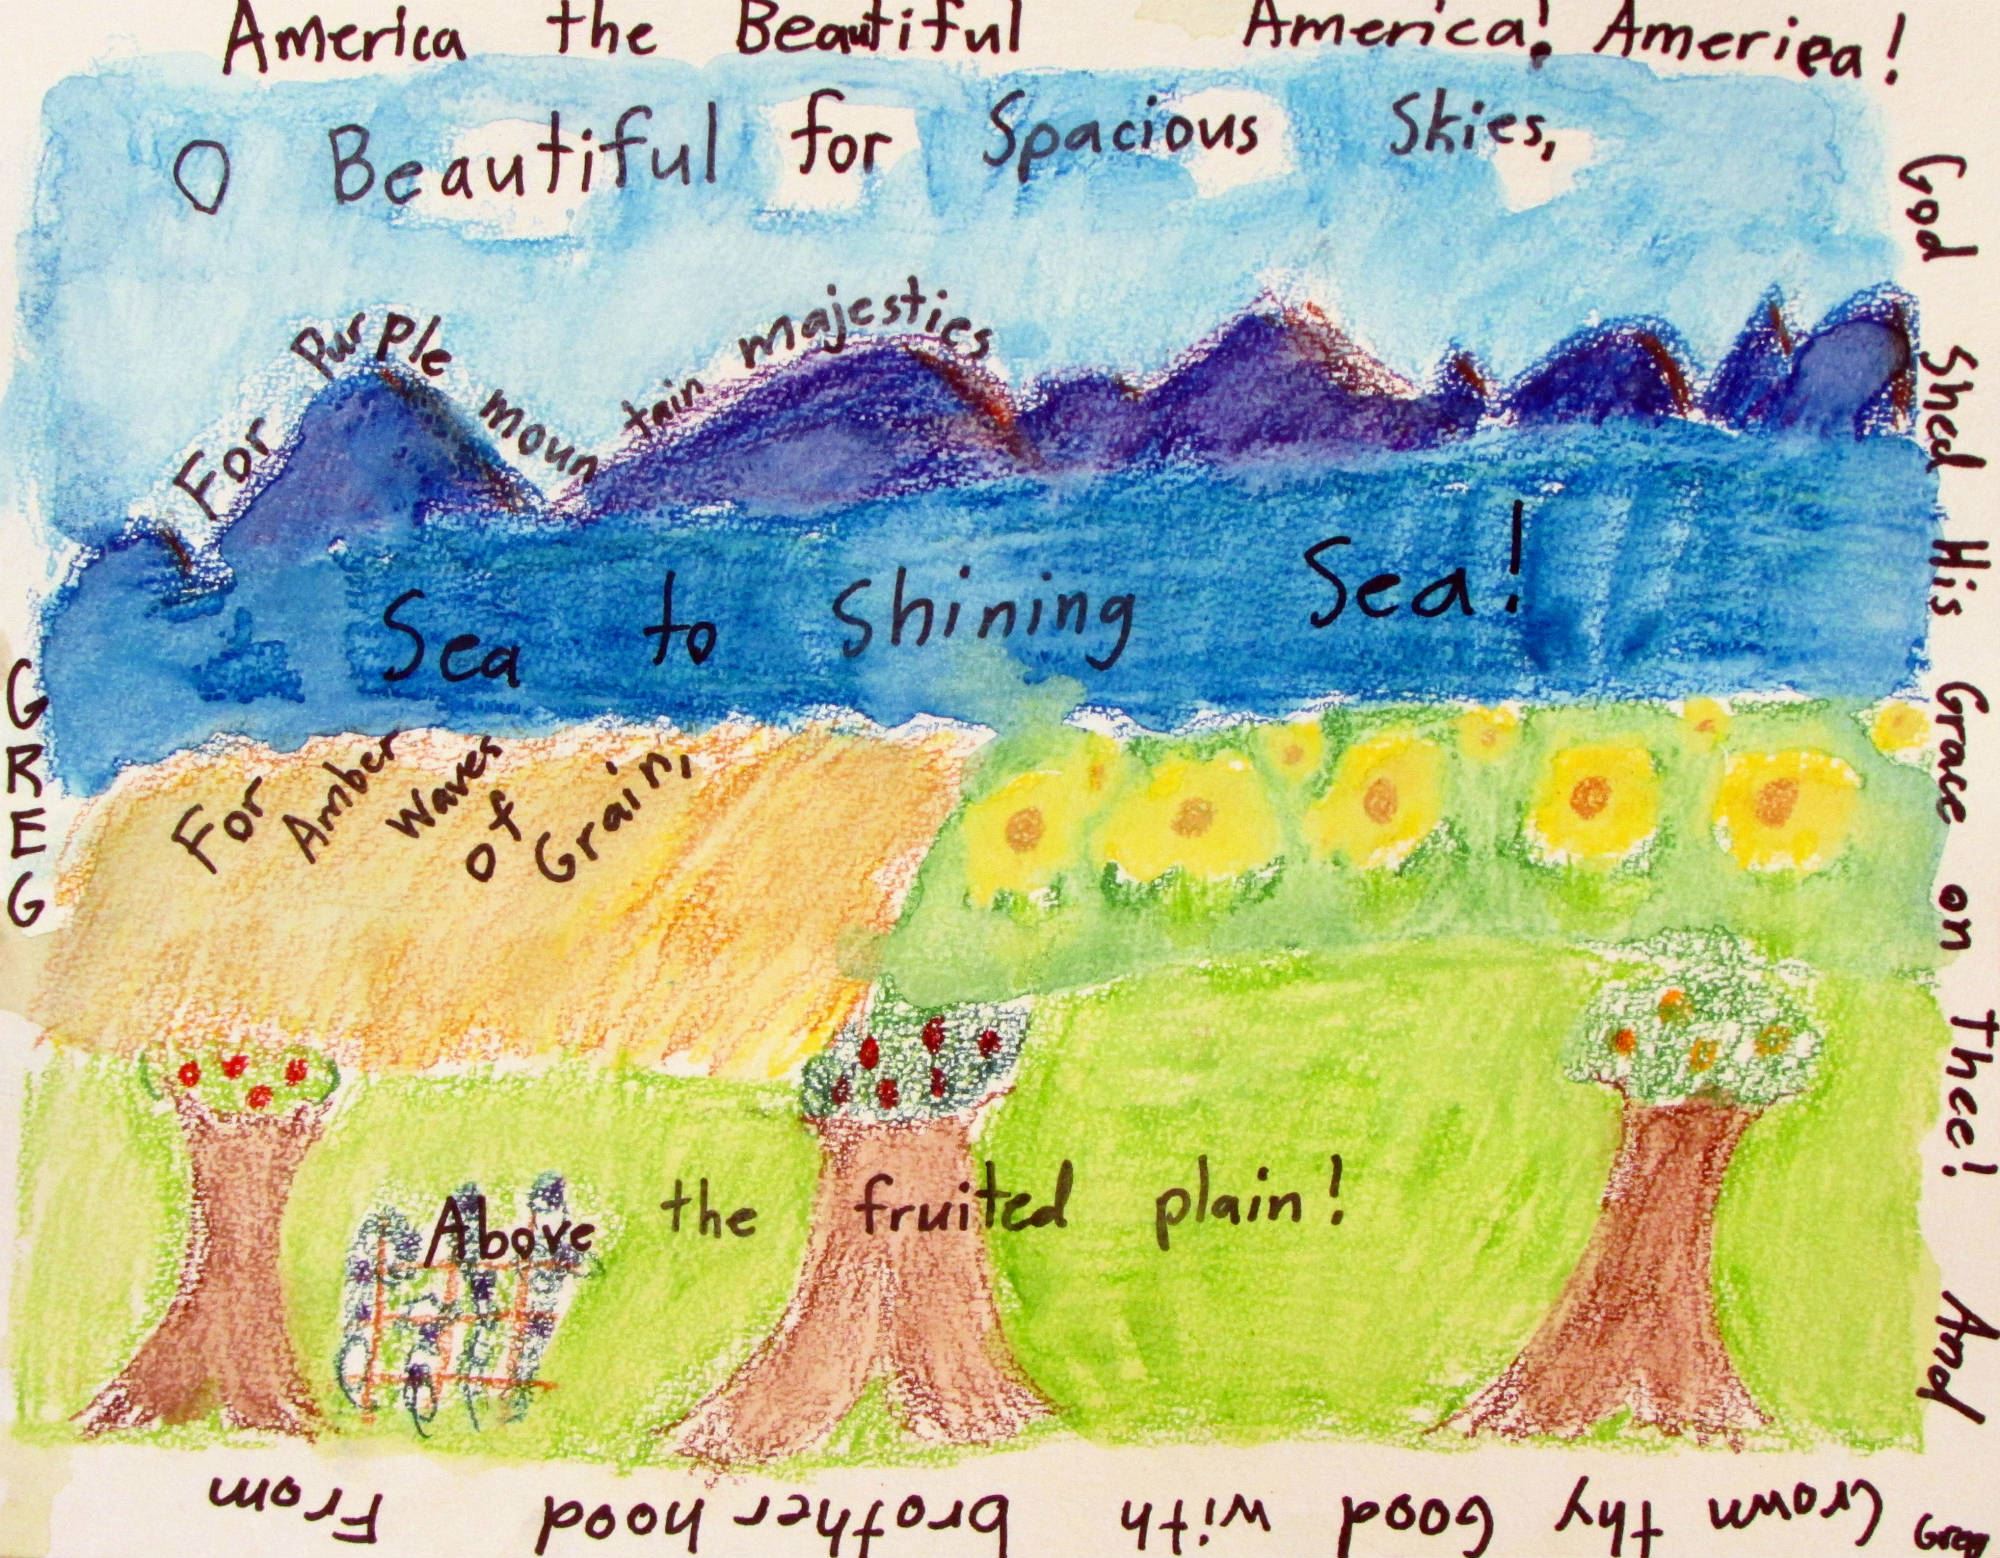 America the Beautiful
America! America!
O Beautiful for Spacious Skies,
For Purple moun tain majesties
Sea to Shining Sea!
For Amber Waves of Grain,
Above the fruited plain!
God Shed His Grace on Thee! And
Crown thy Good with brotherhood From
GREG
Greg